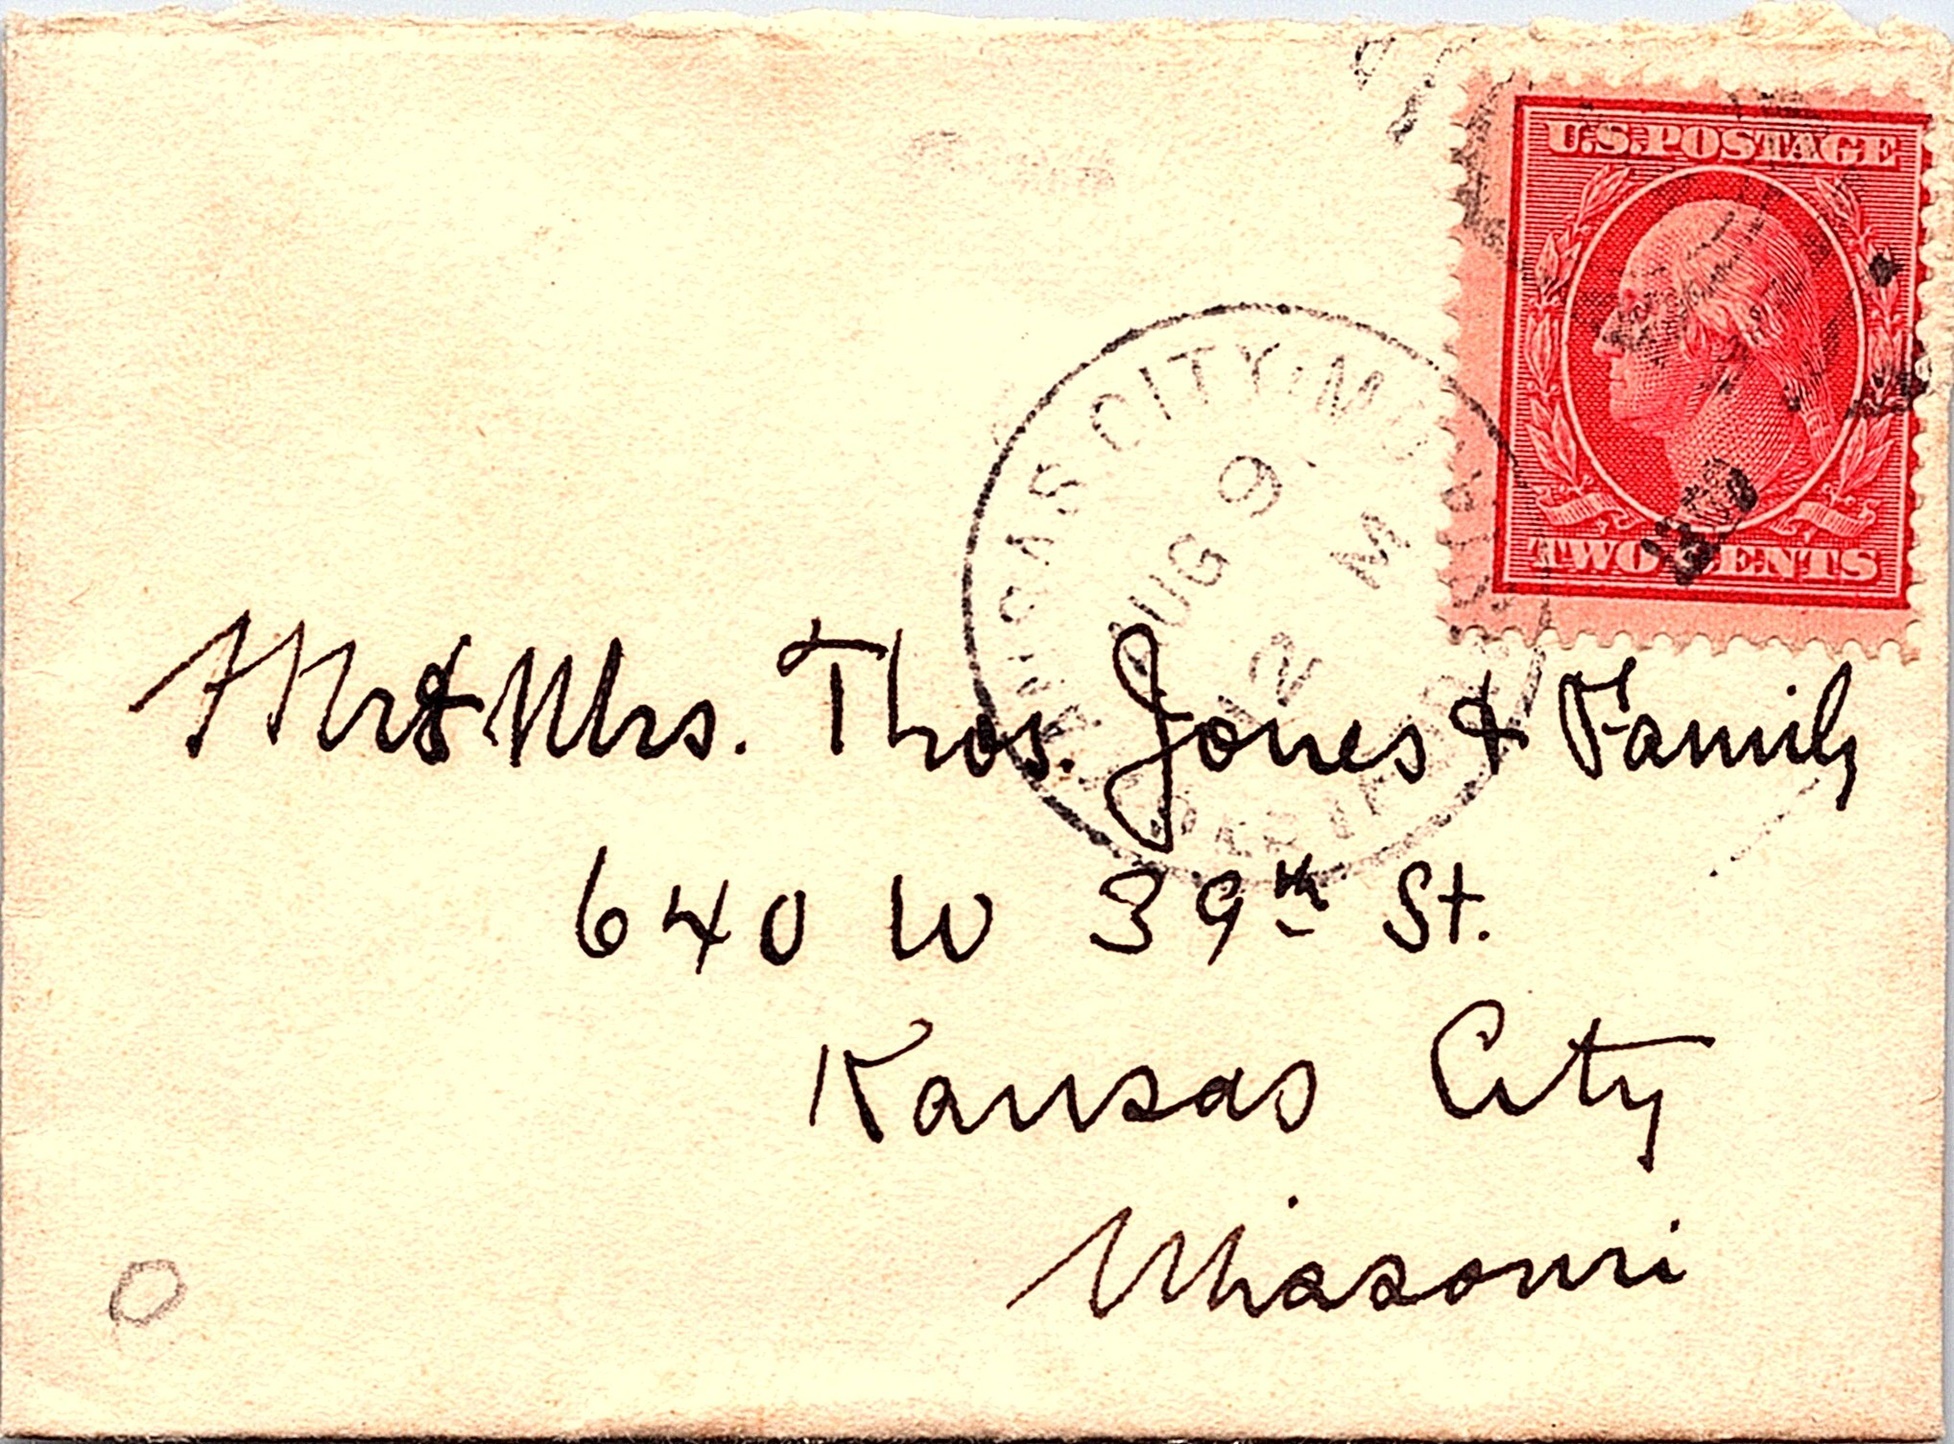 U.S. POSTAGE
TWO CENTS
KANSAS CITY, MO.
AUG 9
12 M
Mr & Mrs. Thos. Jones & Family
640 W 39th St.
Kansas City
Missouri